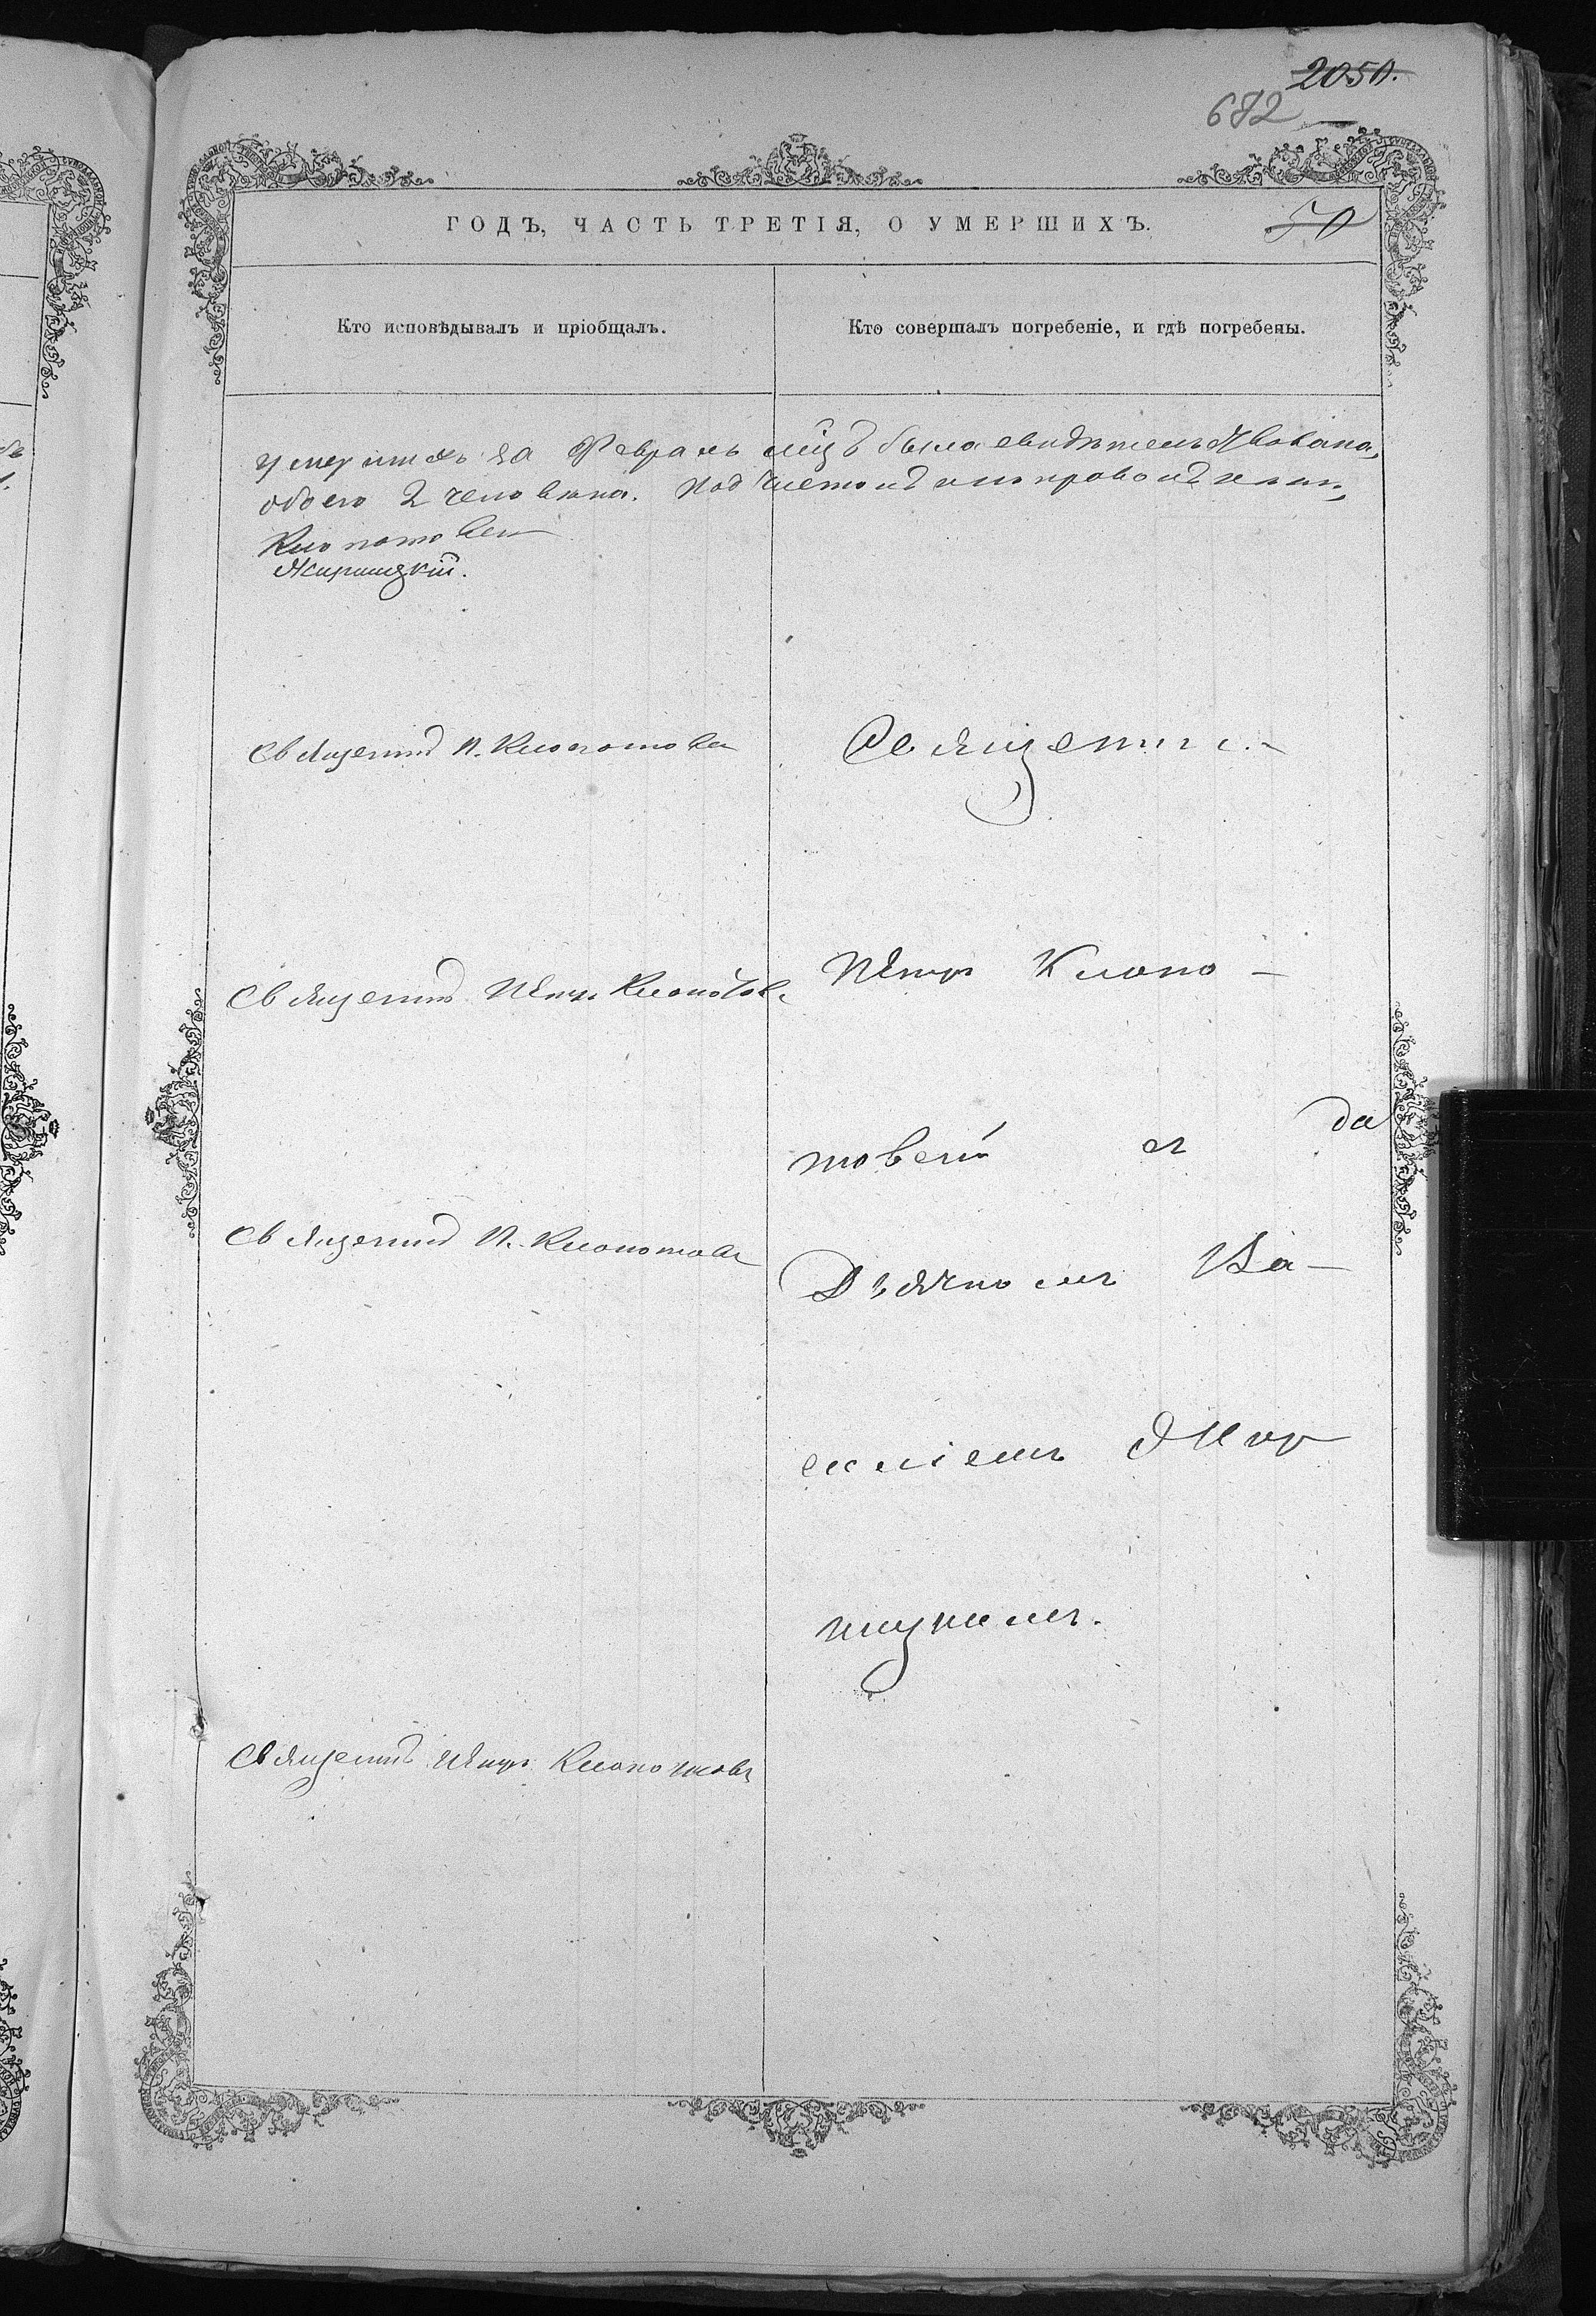 2050.
682
ГОДЪ, ЧАСТЬ ТРЕТІЯ, О УМЕРШИХЪ.
70
Кто исповѣдывалъ и пріобщалъ.
Кто совершалъ погребеніе, и гдѣ погребены.
умершихъ за Февраль мцъ было
обоего 2 человека. Под
Клопотов
Жирицкій.
Священник П. Клопотов
Священник
Священник Петр Клопотов
Петръ Клопо-
товъ съ да
Священник П. Клопотов
Дъячкомъ Ва-
силіемъ Жир
ицкимъ.
Священник Петръ Клопотовъ